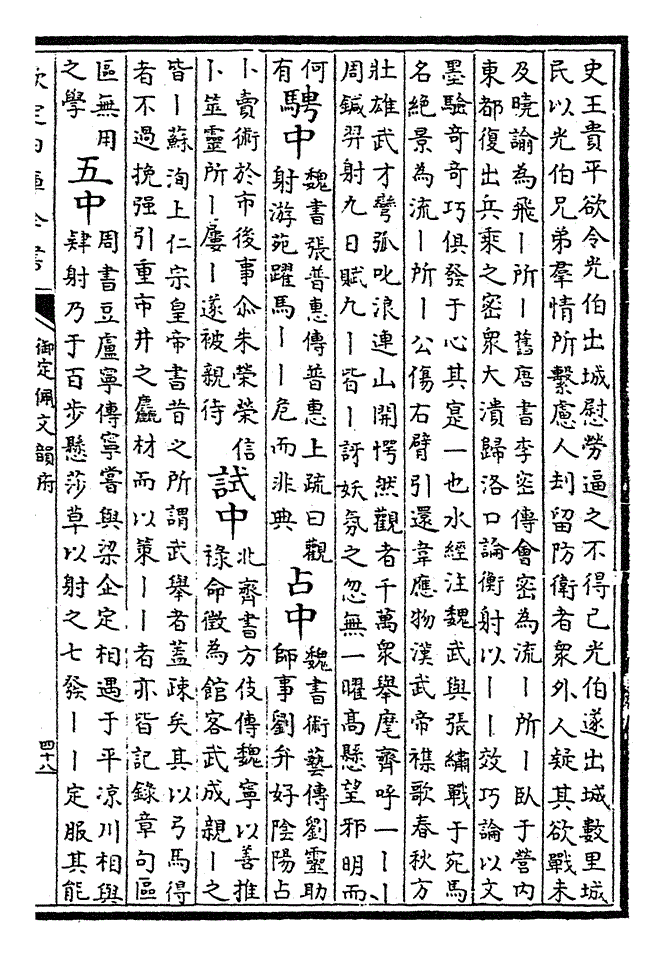 史王貴平欲令光伯出城慰勞逼之不得已光伯遂出城數里城
民以光伯兄弟羣情所繫慮人刦留防衛者衆外人疑其欲戰未
及曉諭為飛丨所丨舊唐書李密傳會密為流丨所丨臥于營内
東都復出兵乘之密衆大潰歸洛口論衡射以丨丨效巧論以文
墨驗奇奇巧俱發于心其寔一也水經注魏武與張繡戰于宛馬
名絕景為流丨所丨公傷右臂引還韋應物漢武帝襍歌春秋方
壯雄武才彎弧叱浪連山開愕然觀者千萬衆舉麾齊呼一丨丨
周鍼羿射九日賦九丨皆丨訝妖氛之忽無一曜高懸望邪明而
何
有
騁中
魏書張普惠傳普惠上疏曰觀
射游苑躍馬丨丨危而非典
占中
魏書術藝傳劉靈助
師事劉弁好陰陽占
卜賣術於市後事尒朱榮榮信
卜筮靈所丨屢丨遂被親待
試中
北齊書方伎傳魏寧以善推
祿命徵為館客武成親丨之
皆丨蘇洵上仁宗皇帝書昔之所謂武舉者蓋疎矣其以弓馬得
者不過挽强引重市井之麤材而以策丨丨者亦皆記錄章句區
區無用
之學
五中
周書豆盧寧傳寧嘗與梁企定相遇于平涼川相與
肄射乃于百步懸莎草以射之七發丨丨定服其能
欽定四庫全書
御定佩文韻府
四十八